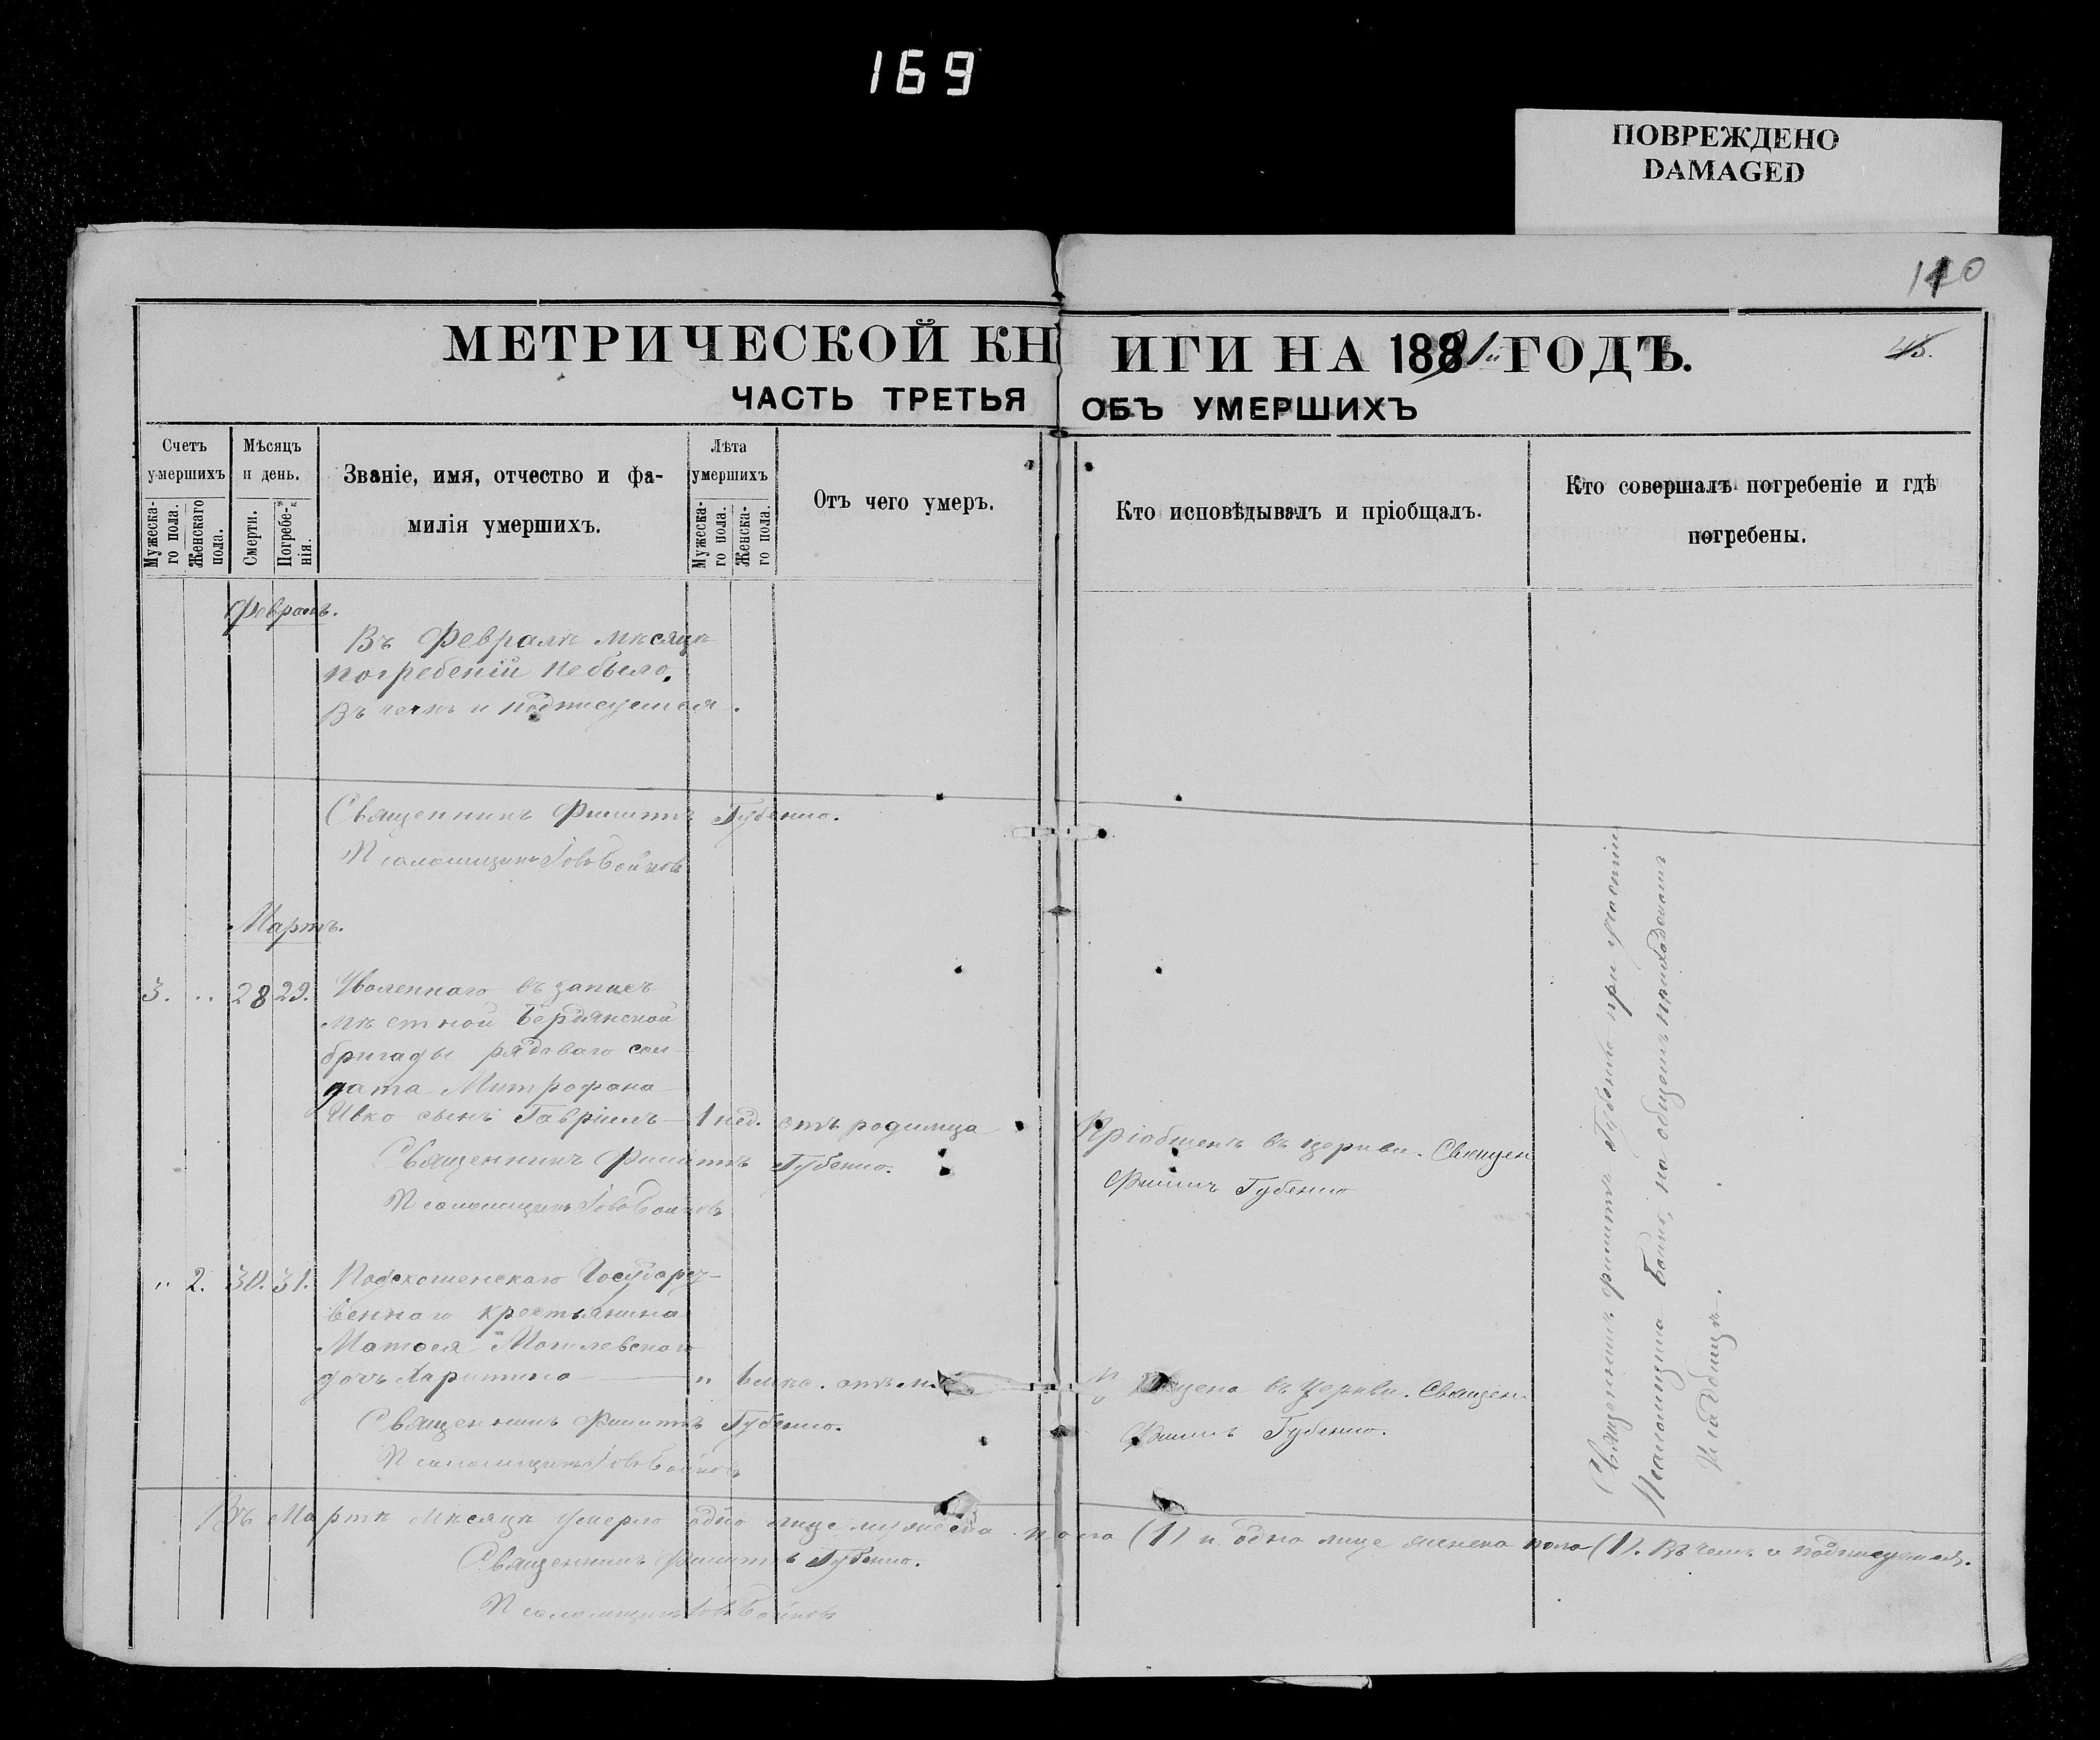 169
ПОВРЕЖДЕНО
DAMAGED
110
45.
МЕТРИЧЕСКОЙ КНИГИ НА 1881й ГОДЪ.
ЧАСТЬ ТРЕТЬЯ ОБЪ УМЕРШИХЪ
Счетъ умершихъ
Мужескаго пола.
Женскаго пола.
Мѣсяцъ и день.
Смерти.
Погребенія.
Званіе, имя, отчество и фамилія умершихъ.
Лѣта умершихъ
Мужескаго пола.
Женскаго пола.
Отъ чего умеръ.
Кто исповѣдывалъ и пріобщалъ.
Кто совершалъ погребеніе и гдѣ погребены.
Февраль.
Въ Февралѣ мѣсяцѣ
погребеній небыло.
Въ чемъ и подписуемся.
Священникъ Филиппъ Губенко.
Псаломщикъ Іовъ Бойковъ
Мартъ.
3. .. 28 29. Уволеннаго въ запасъ
мѣстной Бердянской
бригады рядоваго сол-
дата Митрофана
Ивко сынъ Гавріилъ 1 нед. отъ родимца
Пріобщенъ въ церкви. Священ
Филипъ Губенко
Священникъ Филиппъ Губенко.
Псаломщикъ Іовъ Бойковъ
" 2. 30. 31. Государст-
веннаго крестьянина
Матѳея Могилевскаго
дочь Харитина " 6 мѣс. отъ
въ церкви. Священ.
Филипъ Губенко.
Священникъ Филиппъ Губенко.
Псаломщикъ Іовъ Бойковъ
Въ Мартѣ мѣсяцѣ умерло одно лице мужеска пола (1) и одно лице женска пола (1). Въ чемъ и подписуемся.
Священникъ Филиппъ Губенко.
Псаломщикъ Іовъ Бойковъ
Священникъ Филиппъ Губенко при участіи
Псаломщика Бойко, на общемъ приходскомъ
кладбищѣ.